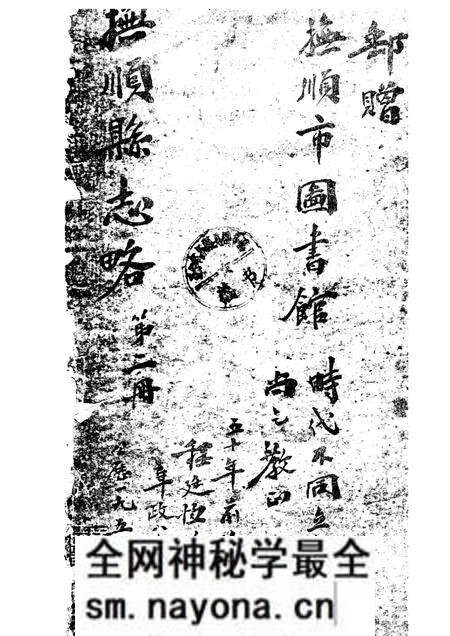 郵贈
撫順市圖書館
時代不同立
尚之教正
五十年前
程廷恒
阜政
歷九五
撫順縣志略
第二冊
全网神秘学最全
sm.nayona.cn